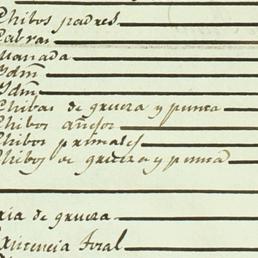 Chibos padres
Cabras
Manada
Ydm̃
Ydm̃
Chibas de gruesa y punta
Chibos añejos
Chibos primales
Chibos de gruesa y punta
ria de gruesa
Existencia total